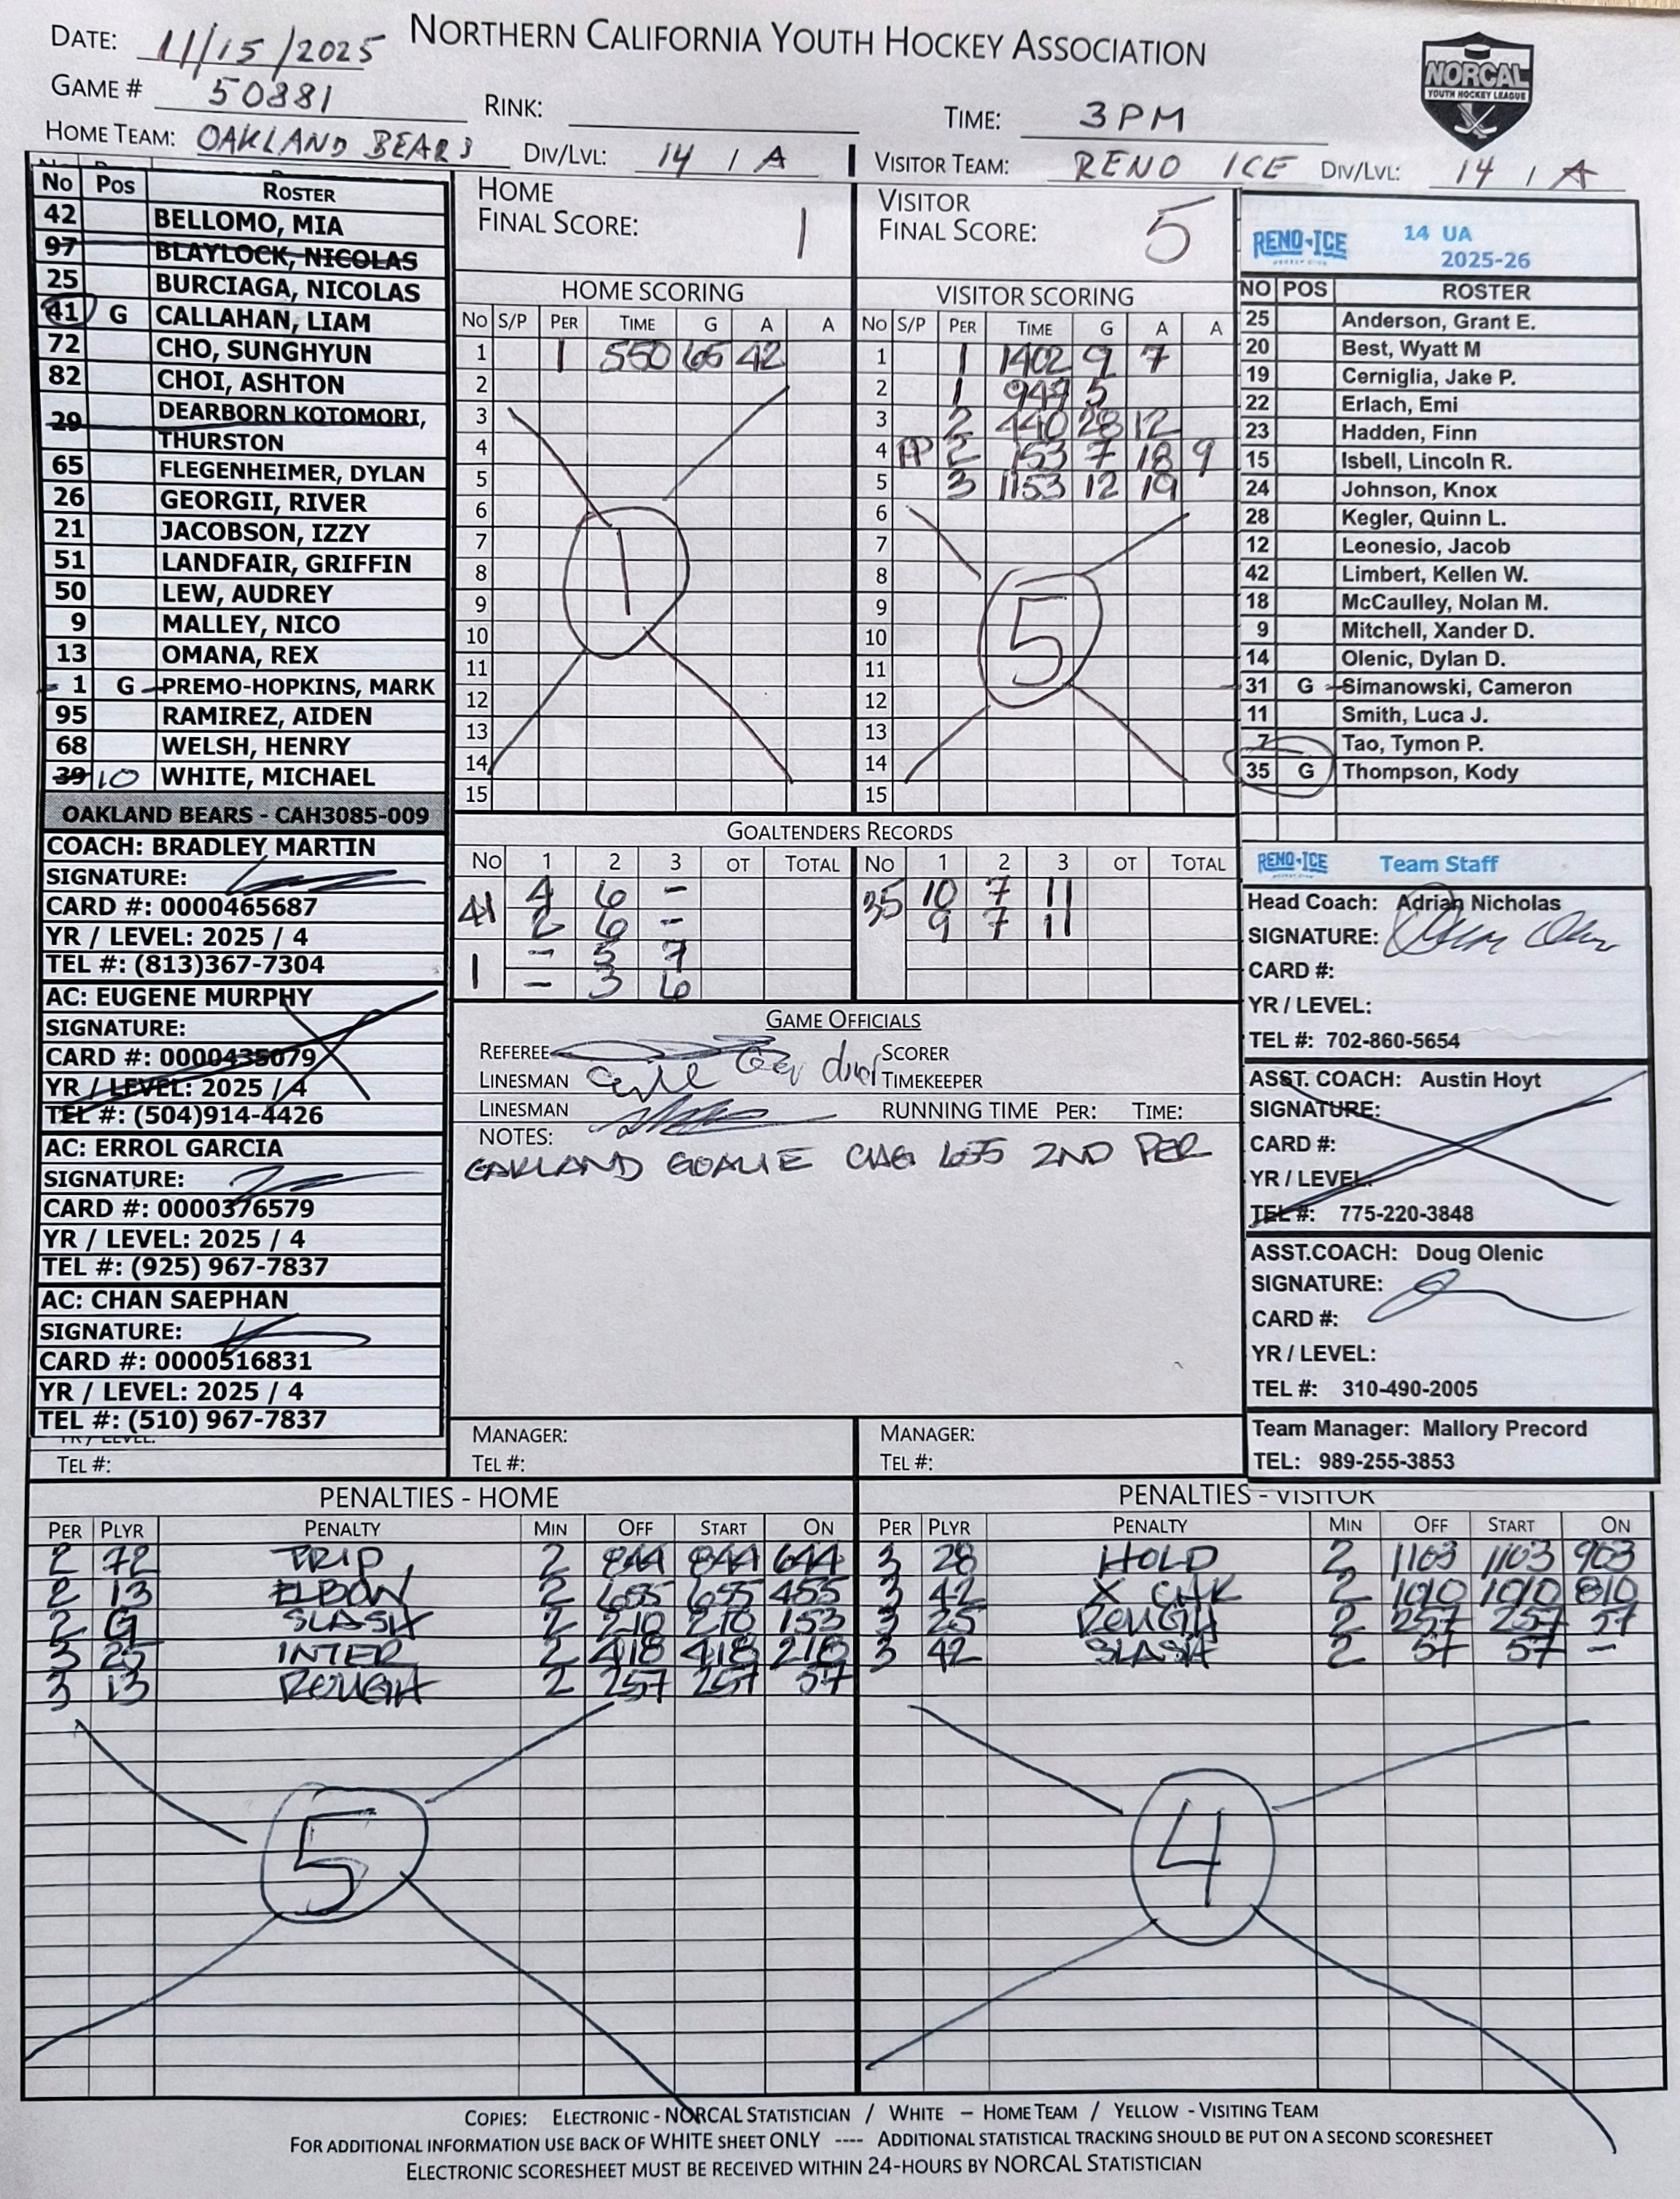 NORTHERN CALIFORNIA YOUTH HOCKEY ASSOCIATION
DATE: 11/15/2025
GAME # 50881 RINK: TIME: 3PM
NORCAL
YOUTH HOCKEY LEAGUE
HOME TEAM: OAKLAND BEARS DIV/LVL: 14 / A VISITOR TEAM: RENO ICE DIV/LVL: 14 / A
No Pos ROSTER
42 BELLOMO, MIA
97 BLAYLOCK, NICOLAS
25 BURCIAGA, NICOLAS
41 G CALLAHAN, LIAM
72 CHO, SUNGHYUN
82 CHOI, ASHTON
29 DEARBORN KOTOMORI,
THURSTON
65 FLEGENHEIMER, DYLAN
26 GEORGII, RIVER
21 JACOBSON, IZZY
51 LANDFAIR, GRIFFIN
50 LEW, AUDREY
9 MALLEY, NICO
13 OMANA, REX
1 G PREMO-HOPKINS, MARK
95 RAMIREZ, AIDEN
68 WELSH, HENRY
39 10 WHITE, MICHAEL
OAKLAND BEARS - CAH3085-009
COACH: BRADLEY MARTIN
SIGNATURE:
CARD #: 0000465687
YR / LEVEL: 2025 / 4
TEL #: (813)367-7304
AC: EUGENE MURPHY
SIGNATURE:
CARD #: 0000435079
YR / LEVEL: 2025 / 4
TEL #: (504)914-4426
AC: ERROL GARCIA
SIGNATURE:
CARD #: 0000376579
YR / LEVEL: 2025 / 4
TEL #: (925) 967-7837
AC: CHAN SAEPHAN
SIGNATURE:
CARD #: 0000516831
YR / LEVEL: 2025 / 4
TEL #: (510) 967-7837
TEL #:
HOME
FINAL SCORE: 1
HOME SCORING
No S/P PER TIME G A A
1 1 550 65 42
2
3
4
5
6
7
8
9
10
11
12
13
14
15
1
VISITOR
FINAL SCORE: 5
VISITOR SCORING
No S/P PER TIME G A A
1 1 1402 9 7
2 1 949 5
3 2 440 28 12
4 PP 2 153 7 18 9
5 3 1153 12 19
6
7
8
9
10
11
12
13
14
15
5
GOALTENDERS RECORDS
No 1 2 3 OT TOTAL No 1 2 3 OT TOTAL
41 4 6 - 35 10 7 11
2 6 - 9 7 11
1 - 5 7
- 3 6
GAME OFFICIALS
REFEREE SCORER
LINESMAN TIMEKEEPER
LINESMAN RUNNING TIME PER: TIME:
NOTES:
OAKLAND GOALIE CHG 655 2ND PER
MANAGER: MANAGER:
TEL #: TEL #:
RENO ICE 14 UA
2025-26
NO POS ROSTER
25 Anderson, Grant E.
20 Best, Wyatt M
19 Cerniglia, Jake P.
22 Erlach, Emi
23 Hadden, Finn
15 Isbell, Lincoln R.
24 Johnson, Knox
28 Kegler, Quinn L.
12 Leonesio, Jacob
42 Limbert, Kellen W.
18 McCaulley, Nolan M.
9 Mitchell, Xander D.
14 Olenic, Dylan D.
31 G Simanowski, Cameron
11 Smith, Luca J.
7 Tao, Tymon P.
35 G Thompson, Kody
RENO ICE Team Staff
Head Coach: Adrian Nicholas
SIGNATURE:
CARD #:
YR / LEVEL:
TEL #: 702-860-5654
ASST. COACH: Austin Hoyt
SIGNATURE:
CARD #:
YR / LEVEL:
TEL #: 775-220-3848
ASST.COACH: Doug Olenic
SIGNATURE:
CARD #:
YR / LEVEL:
TEL #: 310-490-2005
Team Manager: Mallory Precord
TEL: 989-255-3853
PENALTIES - HOME
PER PLYR PENALTY MIN OFF START ON
2 72 TRIP 2 844 844 644
2 13 ELBOW 2 655 655 455
2 G SLASH 2 210 210 153
3 25 INTER 2 418 418 218
3 13 ROUGH 2 257 257 57
5
PENALTIES - VISITOR
PER PLYR PENALTY MIN OFF START ON
3 28 HOLD 2 1103 1103 903
3 42 X CHK 2 1010 1010 810
3 25 ROUGH 2 257 257 57
3 42 SLASH 2 57 57 -
4
COPIES: ELECTRONIC - NORCAL STATISTICIAN / WHITE – HOME TEAM / YELLOW - VISITING TEAM
FOR ADDITIONAL INFORMATION USE BACK OF WHITE SHEET ONLY ---- ADDITIONAL STATISTICAL TRACKING SHOULD BE PUT ON A SECOND SCORESHEET
ELECTRONIC SCORESHEET MUST BE RECEIVED WITHIN 24-HOURS BY NORCAL STATISTICIAN